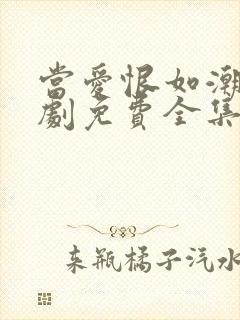 當愛恨如潮
劇免費全集
来瓶橘子汽水